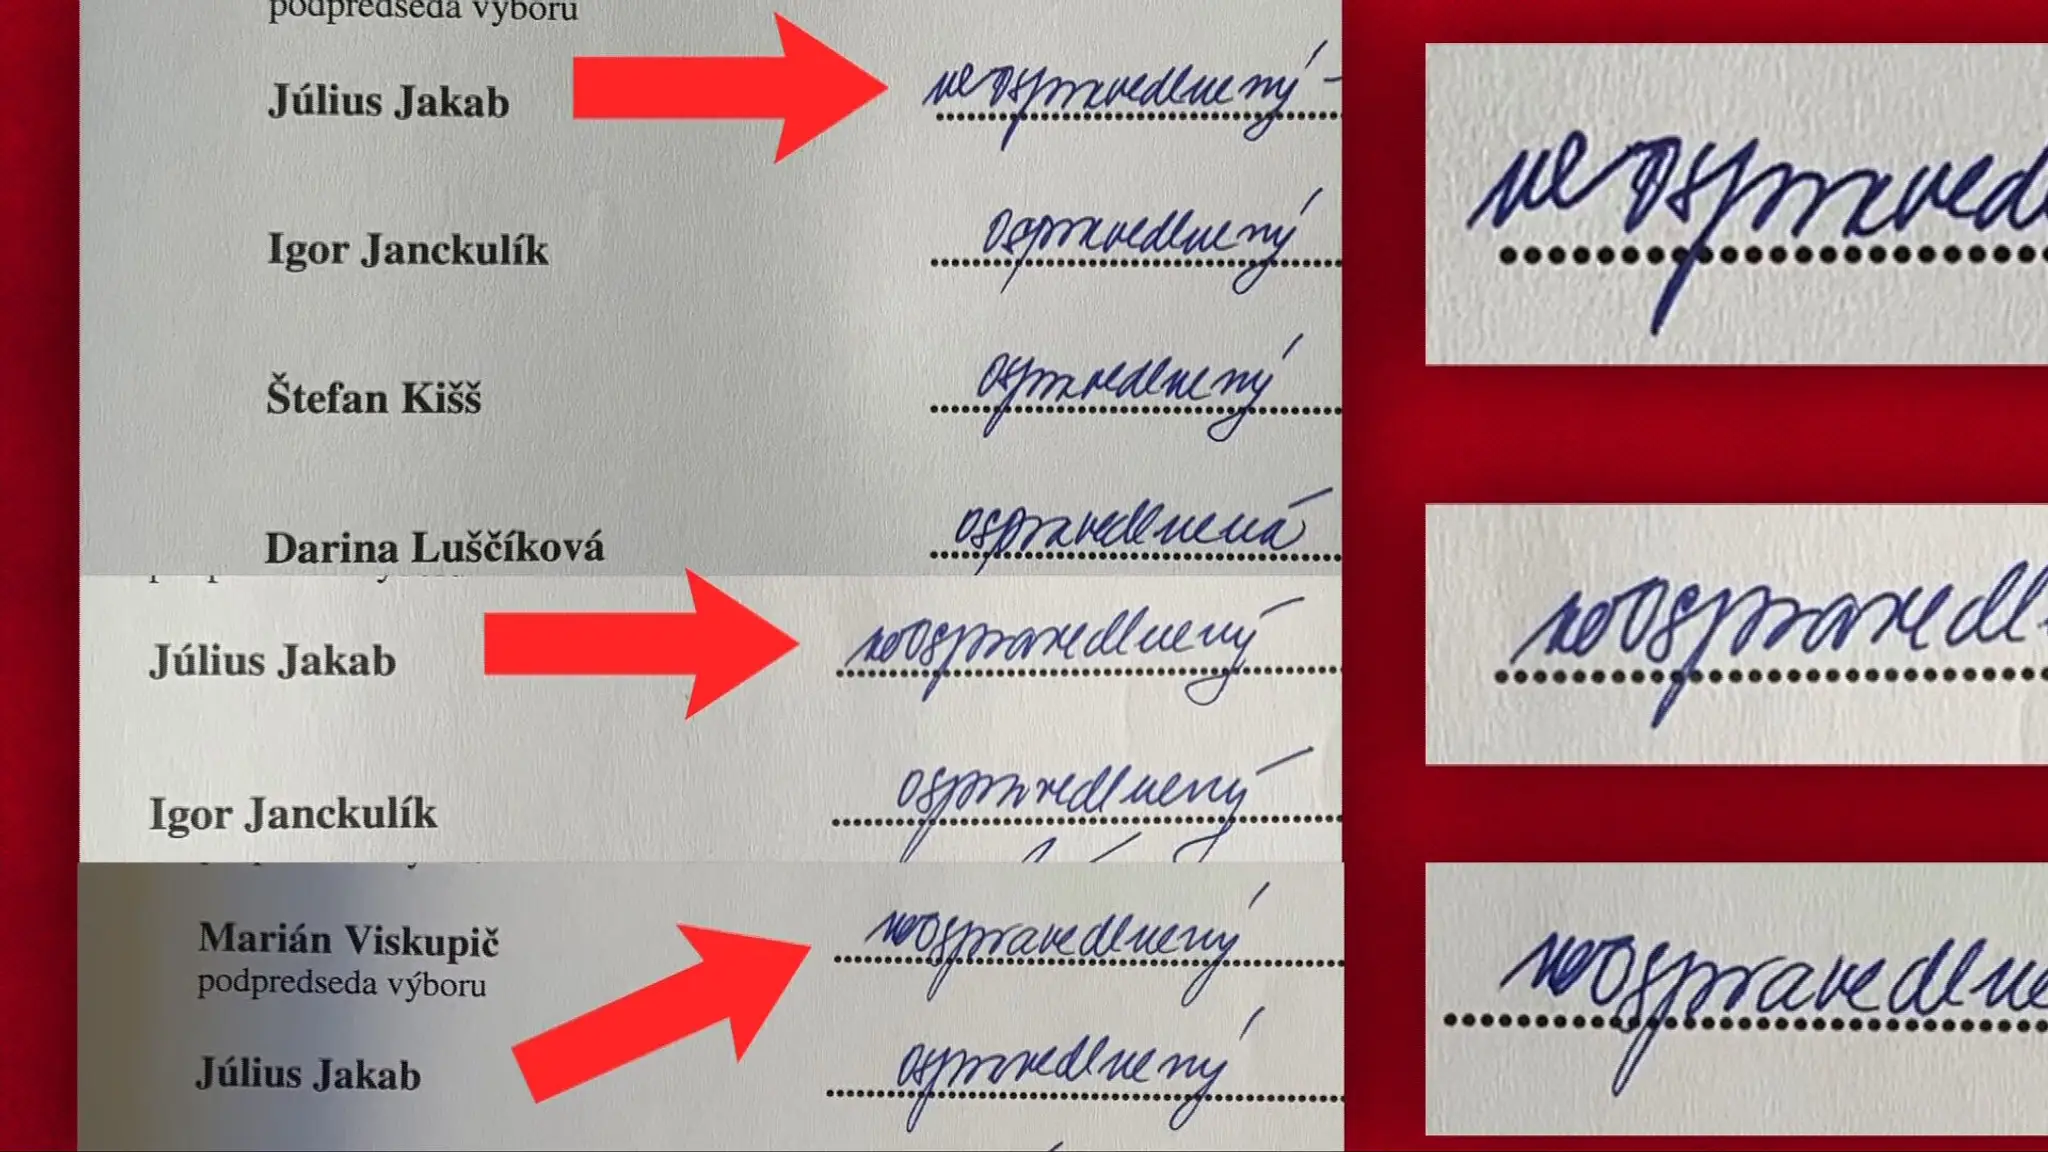 podpredseda výboru
Július Jakab neospravedlnený -
Igor Janckulík ospravedlnený
Štefan Kišš ospravedlnený
Darina Luščíková ospravedlnená
Július Jakab neospravedlnený
Igor Janckulík ospravedlnený
Marián Viskupič neospravedlnený
podpredseda výboru
Július Jakab ospravedlnený
neospraved
neospravedl
neospravedlne